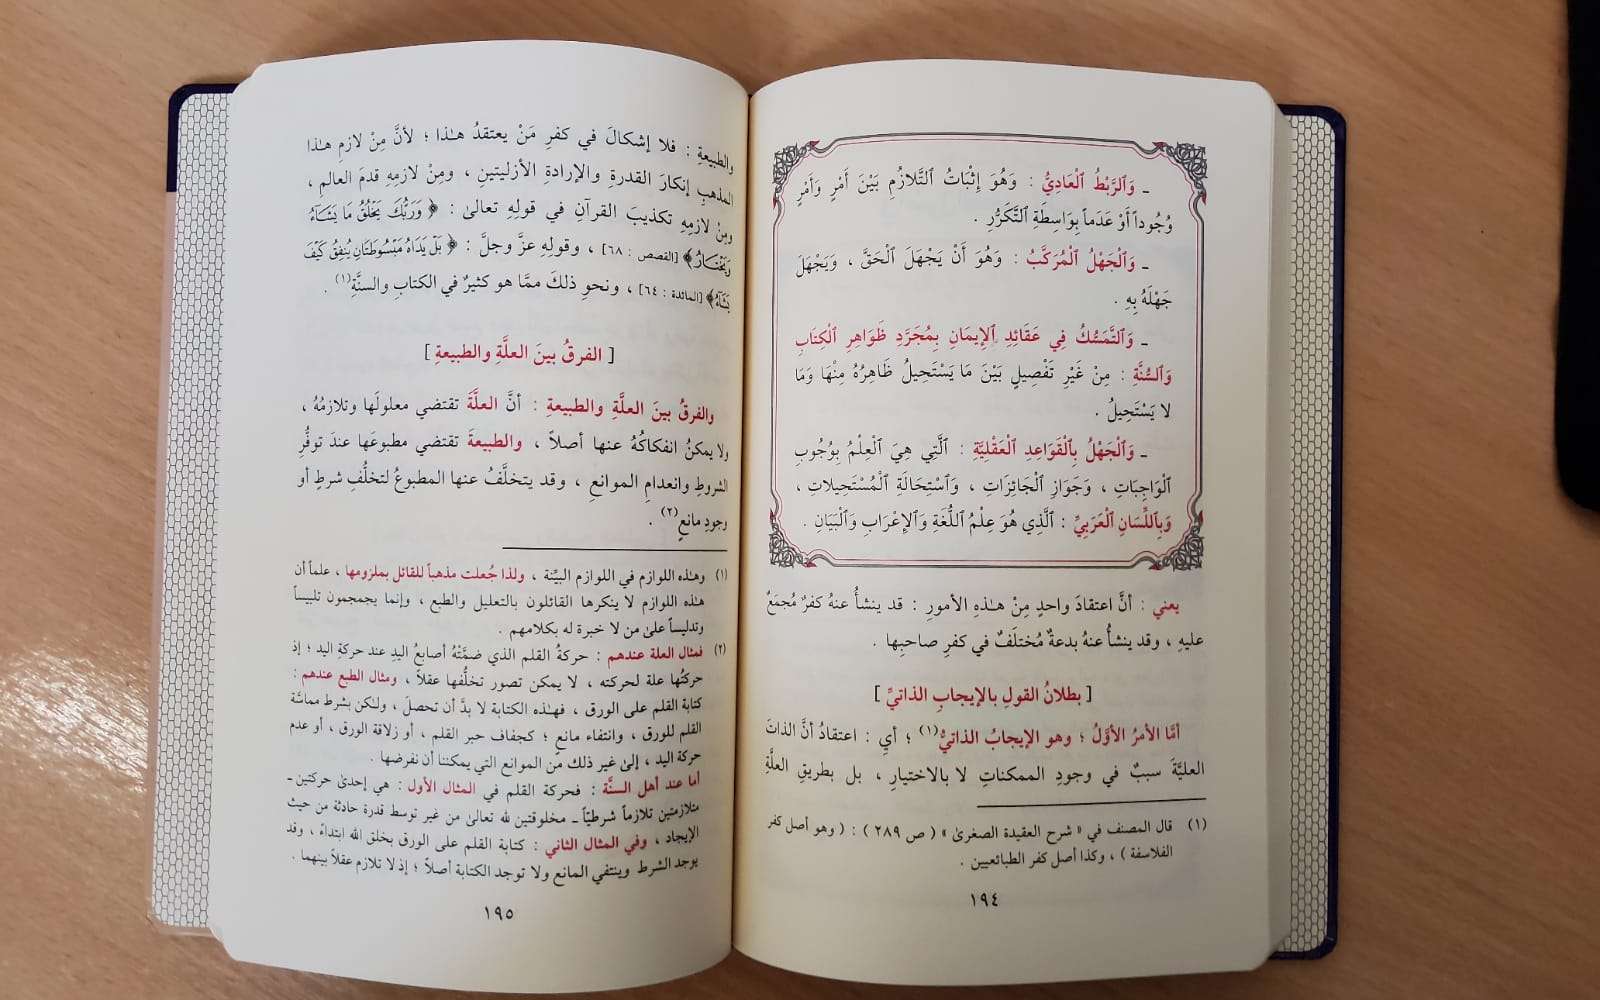 ـ وَٱلرَّبْطُ ٱلْعَادِيُّ : وَهُوَ إِثْبَاتُ ٱلتَّلَازُمِ بَيْنَ أَمْرٍ وَأَمْرٍ
وُجُوداً أَوْ عَدَماً بِوَاسِطَةِ ٱلتَّكَرُّرِ .
ـ وَٱلْجَهْلُ ٱلْمُرَكَّبُ : وَهُوَ أَنْ يَجْهَلَ ٱلْحَقَّ ، وَيَجْهَلَ
جَهْلَهُ بِهِ .
ـ وَٱلتَّمَسُّكُ فِي عَقَائِدِ ٱلْإِيمَانِ بِمُجَرَّدِ ظَوَاهِرِ ٱلْكِتَابِ
وَٱلسُّنَّةِ : مِنْ غَيْرِ تَفْصِيلٍ بَيْنَ مَا يَسْتَحِيلُ ظَاهِرُهُ مِنْهَا وَمَا
لا يَسْتَحِيلُ .
ـ وَٱلْجَهْلُ بِٱلْقَوَاعِدِ ٱلْعَقْلِيَّةِ : ٱلَّتِي هِيَ ٱلْعِلْمُ بِوُجُوبِ
ٱلْوَاجِبَاتِ ، وَجَوَازِ ٱلْجَائِزَاتِ ، وَٱسْتِحَالَةِ ٱلْمُسْتَحِيلَاتِ ،
وَبِٱللِّسَانِ ٱلْعَرَبِيِّ : ٱلَّذِي هُوَ عِلْمُ ٱللُّغَةِ وَٱلْإِعْرَابِ وَٱلْبَيَانِ .
يعني : أنَّ اعتقادَ واحدٍ مِنْ هـٰذهِ الأمورِ : قد ينشأُ عنهُ كفرٌ مُجمَعٌ
عليهِ ، وقد ينشأُ عنهُ بدعةٌ مُختلَفٌ في كفرِ صاحبِها .
[ بطلانُ القولِ بالإيجابِ الذاتيِّ ]
أمَّا الأمرُ الأوَّلُ ؛ وهو الإيجابُ الذاتيُّ(١) ؛ أيِ : اعتقادُ أنَّ الذاتَ
العليَّةَ سببٌ في وجودِ الممكناتِ لا بالاختيارِ ، بل بطريقِ العلَّةِ
(١) قال المصنف في « شرح العقيدة الصغرىٰ » ( ص ٢٨٩ ) : ( وهو أصل كفر
الفلاسفة ) ، وكذا أصل كفر الطبائعيين .
١٩٤
والطبيعةِ : فلا إشكالَ في كفرِ مَنْ يعتقدُ هـٰذا ؛ لأنَّ مِنْ لازمِ هـٰذا
المذهبِ إنكارَ القدرةِ والإرادةِ الأزليتينِ ، ومِنْ لازمِهِ قدمَ العالمِ ،
ومِنْ لازمِهِ تكذيبَ القرآنِ في قولِهِ تعالىٰ : ﴿ وَرَبُّكَ يَخْلُقُ مَا يَشَآءُ
وَيَخْتَارُ ﴾ [القصص : ٦٨] ، وقولِهِ عزَّ وجلَّ : ﴿ بَلْ يَدَاهُ مَبْسُوطَتَانِ يُنفِقُ كَيْفَ
يَشَآءُ ﴾ [المائدة : ٦٤] ، ونحوِ ذلكَ ممَّا هو كثيرٌ في الكتابِ والسنَّةِ(١) .
[ الفرقُ بينَ العلَّةِ والطبيعةِ ]
والفرقُ بينَ العلَّةِ والطبيعةِ : أنَّ العلَّةَ تقتضي معلولَها وتلازمُهُ ،
ولا يمكنُ انفكاكُهُ عنها أصلاً ، والطبيعةَ تقتضي مطبوعَها عندَ توفُّرِ
الشروطِ وانعدامِ الموانعِ ، وقد يتخلَّفُ عنها المطبوعُ لتخلُّفِ شرطٍ أو
وجودِ مانعٍ(٢) .
(١) وهـٰذه اللوازم في اللوازم البيِّنة ، ولذا جُعلت مذهباً للقائل بملزومها ، علماً أن
هـٰذه اللوازم لا ينكرها القائلون بالتعليل والطبع ، وإنما يجمجمون تلبيساً
وتدليساً علىٰ من لا خبرة له بكلامهم .
(٢) فمثال العلة عندهم : حركةُ القلم الذي ضمَّتْهُ أصابعُ اليدِ عند حركةِ اليد ؛ إذ
حركتُها علة لحركته ، لا يمكن تصور تخلُّفها عقلاً ، ومثال الطبع عندهم :
كتابة القلم على الورق ، فهـٰذه الكتابة لا بدَّ أن تحصلَ ، ولـٰكن بشرط مماسَّة
القلم للورق ، وانتفاء مانع ؛ كجفاف حبر القلم ، أو زلاقة الورق ، أو عدم
حركة اليد ، إلىٰ غير ذلك من الموانع التي يمكننا أن نفرضها .
أما عند أهل السنَّة : فحركة القلم في المثال الأول : هي إحدىٰ حركتين ـ
متلازمتين تلازماً شرطيّاً ـ مخلوقتين لله تعالىٰ من غير توسط قدرة حادثة من حيث
الإيجاد ، وفي المثال الثاني : كتابة القلم على الورق بخلق الله ابتداءً ، وقد
يوجد الشرط وينتفي المانع ولا توجد الكتابة أصلاً ؛ إذ لا تلازم عقلاً بينهما .
١٩٥